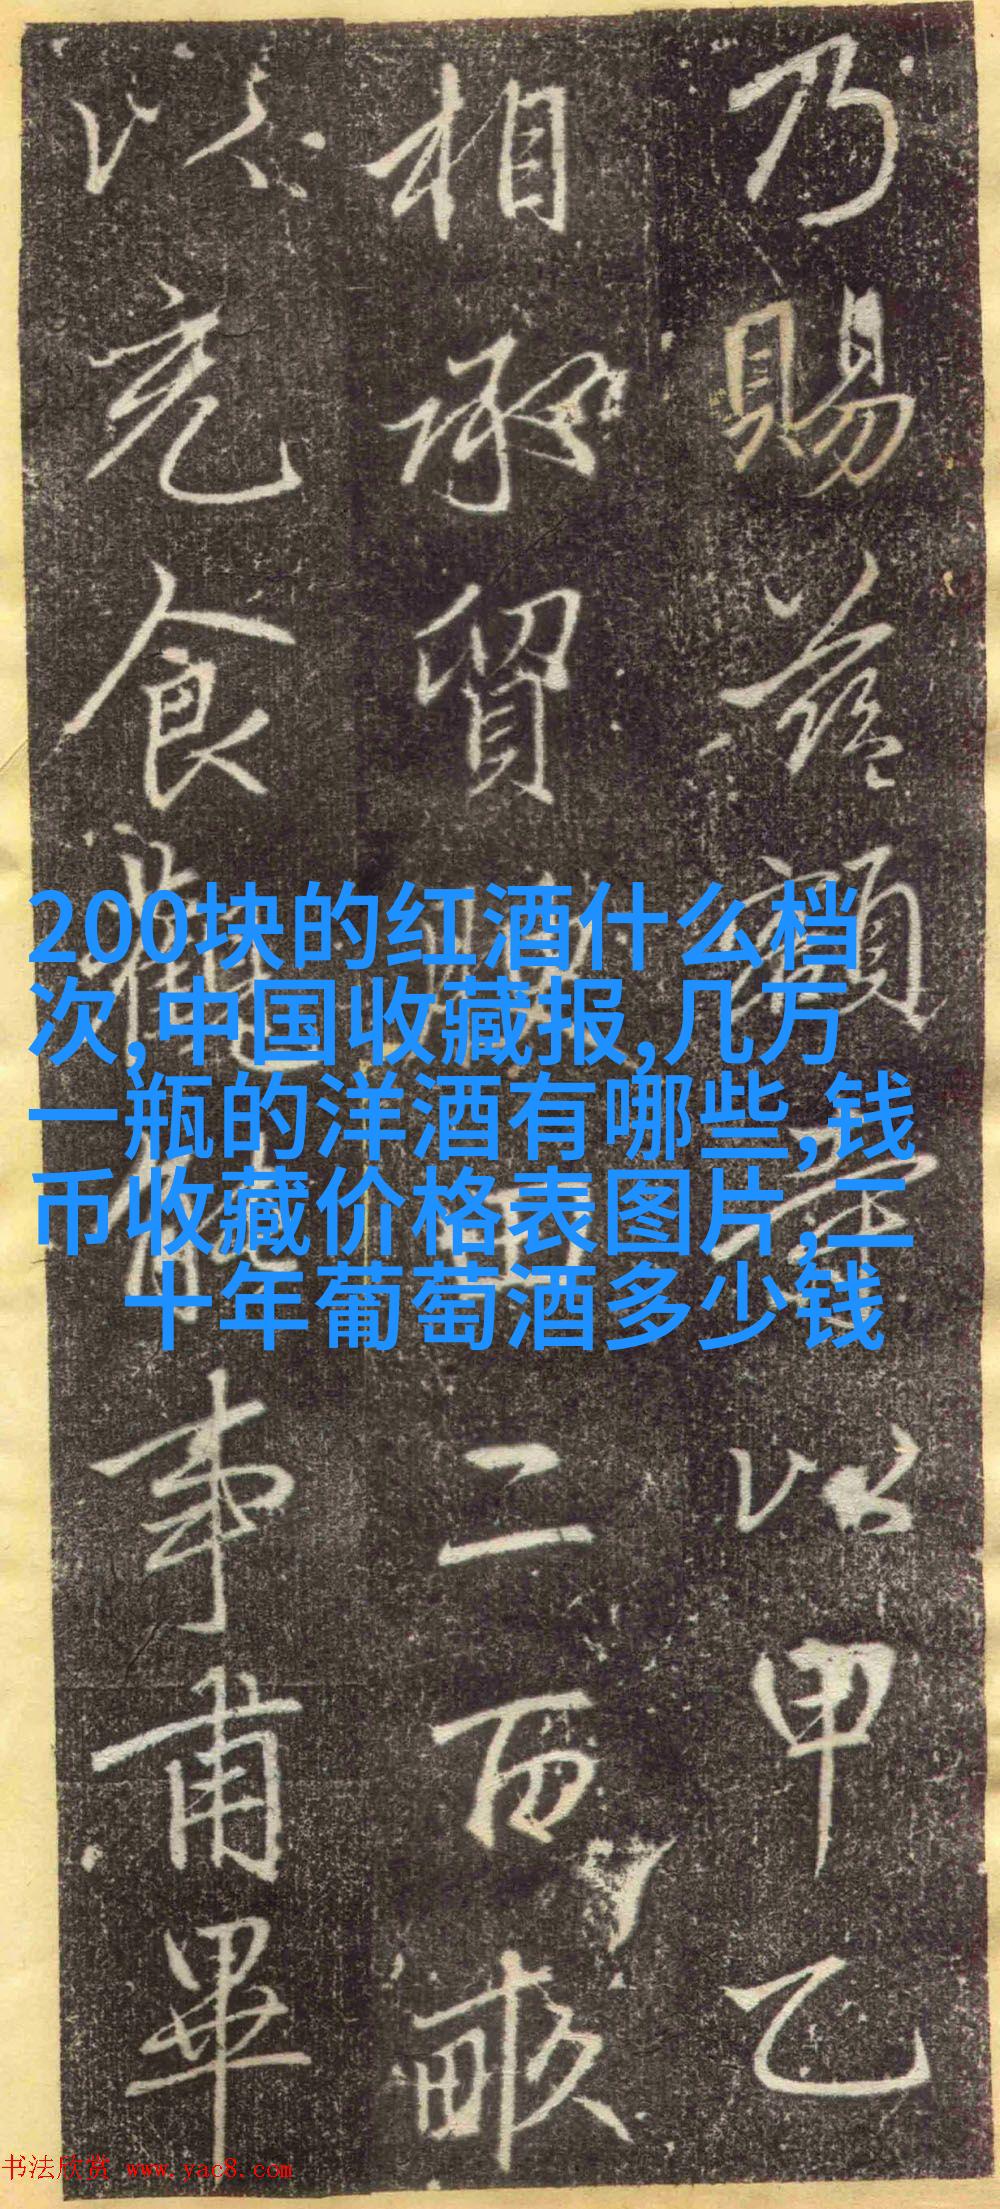 乃賜額以甲乙
相承貿田二百畝
以充食事甫畢
200块的红酒什么档
次,中国收藏报,几万
一瓶的洋酒有哪些,钱
币收藏价格表图片,二
十年葡萄酒多少钱
书法欣赏 www.yac8.com